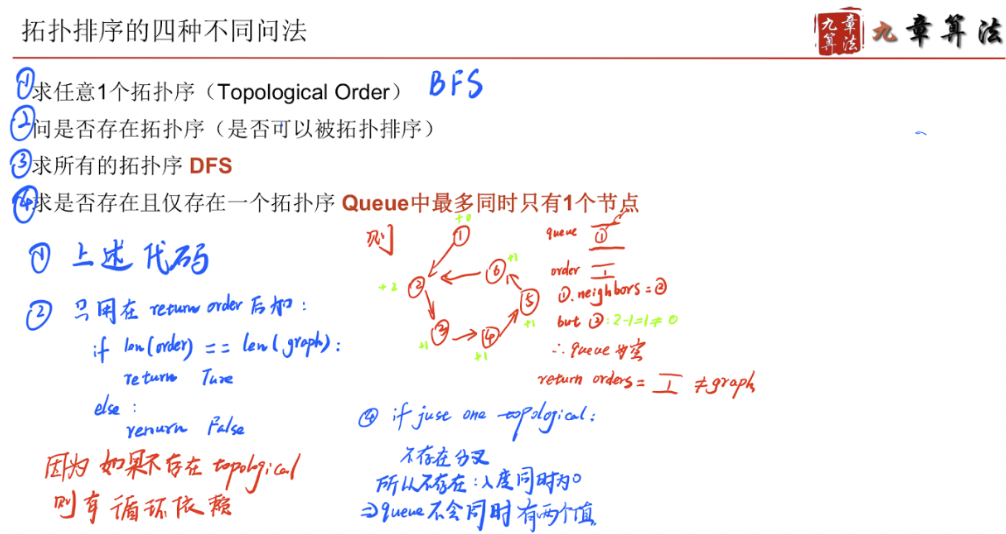 拓扑排序的四种不同问法
九章算法
九章算法
① 求任意1个拓扑序（Topological Order） BFS
② 问是否存在拓扑序（是否可以被拓扑排序）
③ 求所有的拓扑序 DFS
④ 求是否存在且仅存在一个拓扑序 Queue中最多同时只有1个节点
① 上述代码
② 只用在 return order 后加：
if len(order) == len(graph):
return Ture
else:
renurn False
因为 如果不存在 topological
则有 循环依赖
则
+0
①
+2
②
+1
③
+1
④
⑤
+1
⑥
+1
queue ①
order 1
①.neighbors = ②
but ②: 2-1=1≠0
∴ queue 为空
return orders = 1 ≠ graph
④ if just one topological:
不存在分叉
所以不存在：入度同时为0
⇒ queue 不会同时有两个值